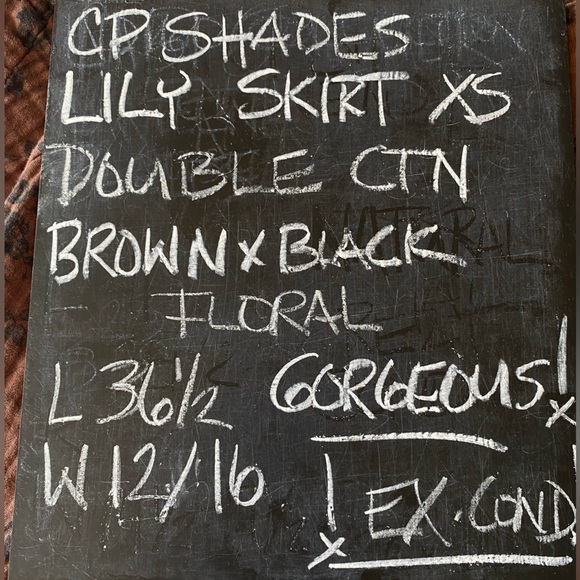 CP SHADES
LILY SKIRT XS
DOUBLE CTN
BROWN X BLACK
FLORAL
L 36 1/2 GORGEOUS!
W 12/16 ! EX. COND!